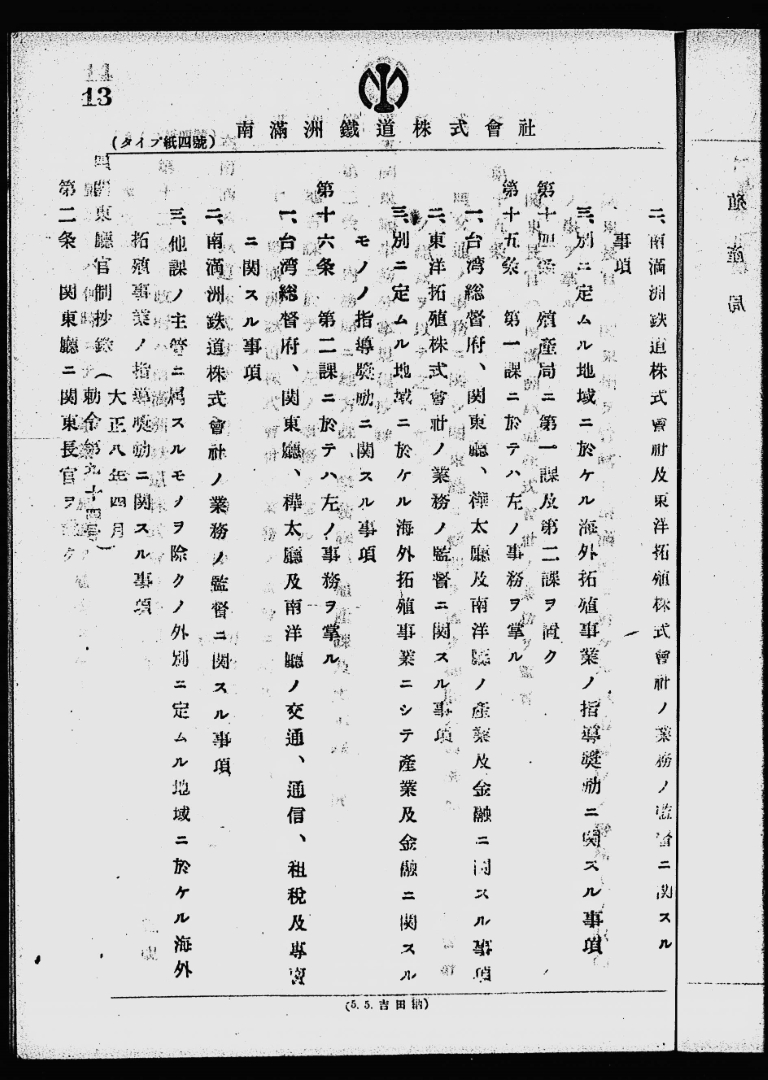 13
南滿洲鐵道株式會社
(タイプ紙四號)
二、南滿洲鉄道株式會社及東洋拓殖株式會社ノ業務ノ監督ニ関スル
事項
三、別ニ定ムル地域ニ於ケル海外拓殖事業ノ指導奬勵ニ関スル事項
第十四条 殖産局ニ第一課及第二課ヲ置ク
第十五条 第一課ニ於テハ左ノ事務ヲ掌ル
一、台湾総督府、関東廳、樺太廳及南洋廳ノ産業及金融ニ関スル事項
二、東洋拓殖株式會社ノ業務ノ監督ニ関スル事項
三、別ニ定ムル地域ニ於ケル海外拓殖事業ニシテ産業及金融ニ関スル
モノノ指導奬勵ニ関スル事項
第十六条 第二課ニ於テハ左ノ事務ヲ掌ル
一、台湾総督府、関東廳、樺太廳及南洋廳ノ交通、通信、租税及専賣
ニ関スル事項
二、南滿洲鉄道株式會社ノ業務ノ監督ニ関スル事項
三、他課ノ主管ニ属スルモノヲ除クノ外別ニ定ムル地域ニ於ケル海外
拓殖事業ノ指導奬勵ニ関スル事項
四 関東廳官制抄錄(大正八年四月
勅令第九十四号)
第二条 関東廳ニ関東長官ヲ ク
(5. 5. 吉田納)
殖産局